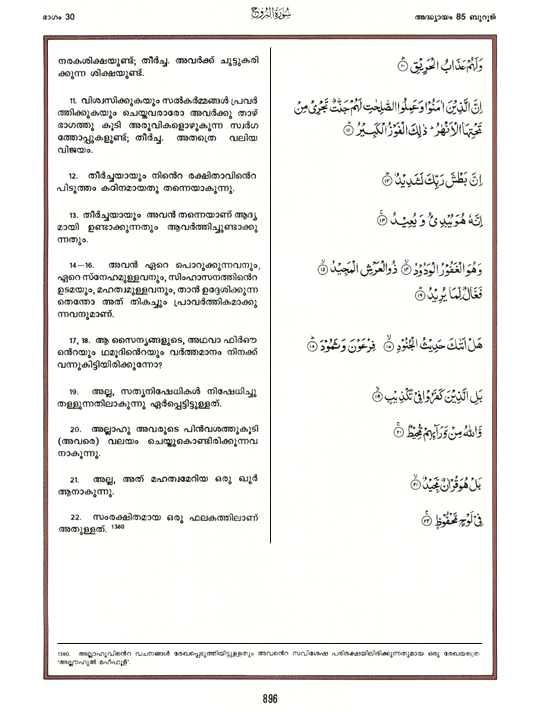 ഭാഗം 30
سُورَةُ البُرُوج
അദ്ധ്യായം 85 ബുറൂജ്
നരകശിക്ഷയുണ്ട്; തീർച്ച. അവർക്ക് ചുട്ടുകരി
ക്കുന്ന ശിക്ഷയുണ്ട്.
وَلَهُمْ عَذَابُ الْحَرِيْقِ ۝١٠
11. വിശ്വസിക്കുകയും സൽകർമ്മങ്ങൾ പ്രവർ
ത്തിക്കുകയും ചെയ്തവരാരോ അവർക്കു താഴ്
ഭാഗത്തു കൂടി അരുവികളൊഴുകുന്ന സ്വർഗ
ത്തോപ്പുകളുണ്ട്; തീർച്ച. അതത്രെ വലിയ
വിജയം.
اِنَّ الَّذِيْنَ اٰمَنُوْا وَعَمِلُوا الصّٰلِحٰتِ لَهُمْ جَنّٰتٌ تَجْرِيْ مِنْ
تَحْتِهَا الْاَنْهٰرُ ذٰلِكَ الْفَوْزُ الْكَبِيْرُ ۝١١
12. തീർച്ചയായും നിന്റെ രക്ഷിതാവിന്റെ
പിടുത്തം കഠിനമായതു തന്നെയാകുന്നു.
اِنَّ بَطْشَ رَبِّكَ لَشَدِيْدٌ ۝١٢
13. തീർച്ചയായും അവൻ തന്നെയാണ് ആദ്യ
മായി ഉണ്ടാക്കുന്നതും ആവർത്തിച്ചുണ്ടാക്കു
ന്നതും.
اِنَّهٗ هُوَ يُبْدِئُ وَيُعِيْدُ ۝١٣
14—16. അവൻ ഏറെ പൊറുക്കുന്നവനും,
ഏറെ സ്നേഹമുള്ളവനും, സിംഹാസനത്തിന്റെ
ഉടമയും, മഹത്വമുള്ളവനും, താൻ ഉദ്ദേശിക്കുന്ന
തെന്തോ അത് തികച്ചും പ്രാവർത്തികമാക്കു
ന്നവനുമാണ്.
وَهُوَ الْغَفُوْرُ الْوَدُوْدُ ۝١٤ ذُو الْعَرْشِ الْمَجِيْدُ ۝١٥
فَعَّالٌ لِّمَا يُرِيْدُ ۝١٦
17, 18. ആ സൈന്യങ്ങളുടെ, അഥവാ ഫിർഔ
ന്റെയും ഥമൂദിന്റെയും വർത്തമാനം നിനക്ക്
വന്നുകിട്ടിയിരിക്കുന്നോ?
هَلْ اَتٰىكَ حَدِيْثُ الْجُنُوْدِ ۝١٧ فِرْعَوْنَ وَثَمُوْدَ ۝١٨
19. അല്ല, സത്യനിഷേധികൾ നിഷേധിച്ചു
തള്ളുന്നതിലാകുന്നു ഏർപ്പെട്ടിട്ടുള്ളത്.
بَلِ الَّذِيْنَ كَفَرُوْا فِيْ تَكْذِيْبٍ ۝١٩
20. അല്ലാഹു അവരുടെ പിൻവശത്തുകൂടി
(അവരെ) വലയം ചെയ്തുകൊണ്ടിരിക്കുന്നവ
നാകുന്നു.
وَّاللّٰهُ مِنْ وَّرَآىِٕهِمْ مُّحِيْطٌ ۝٢٠
21. അല്ല, അത് മഹത്വമേറിയ ഒരു ഖുർ
ആനാകുന്നു.
بَلْ هُوَ قُرْاٰنٌ مَّجِيْدٌ ۝٢١
22. സംരക്ഷിതമായ ഒരു ഫലകത്തിലാണ്
അതുള്ളത്. 1380
فِيْ لَوْحٍ مَّحْفُوْظٍ ۝٢٢
1380. അല്ലാഹുവിന്റെ വചനങ്ങൾ രേഖപ്പെടുത്തിയിട്ടുള്ളതും അവന്റെ സവിശേഷ പരിരക്ഷയിലിരിക്കുന്നതുമായ ഒരു രേഖയത്രെ
'അല്ലൗഹുൽ മഹ്ഫൂള്'.
896